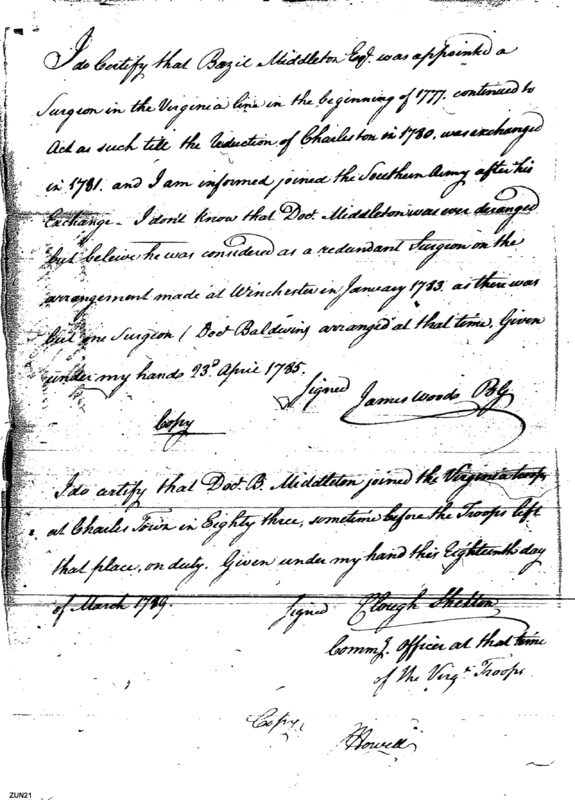 I do Certify that Bazil Middleton Esqr. was appointed a
Surgeon in the Virginia line in the beginning of 1777. continued to
Act as such till the reduction of Charleston in 1780. was exchanged
in 1781. and I am informed joined the Southern Army after his
Exchange - I don't know that Doct. Middleton was ever deranged
but beleive he was considered as a redundant Surgeon on the
arrangement made at Winchester in January 1783. as there was
but one Surgeon (Doct. Baldwin) arranged at that time. Given
under my hands 23d. April 1785.
Signed James Woods BG
Copy
I do certify that Doct. B. Middleton joined the Virginia troops
at Charles Town in Eighty three, sometime before the Troops left
that place, on duty. Given under my hand this Eighteenth day
of March 1789.
Signed Clough Shelton
Commg. Officer at that time
of the Virga. Troops
Copy
Howell
ZUN21